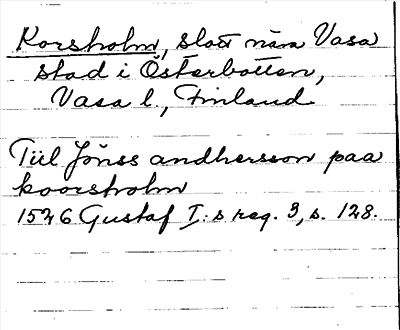 Korsholm, slott nära Vasa
stad i Österbotten,
Vasa l., Finland
Tiil Jönss andhersson paa
koorsholm
1526 Gustaf I:s reg. 3, s. 128.